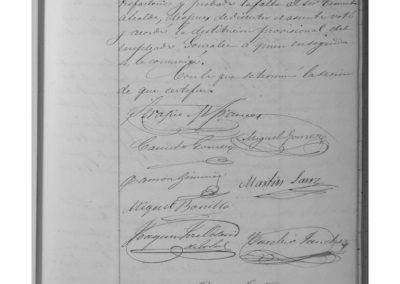 y probada la falta al Sor
Alcalde, despues de discutir el asunto votó
y acordó la destitucion provisional del
empleado Gonzalez a quien enseguida
se le comunicó.
Con lo que se terminó la sesion
de que certifico.
Serapio
Canuto Gomez Miguel Gomez
Ramon Gimenez Martin Sanz
Miguel Bonilla
Joaquin
Sanchez